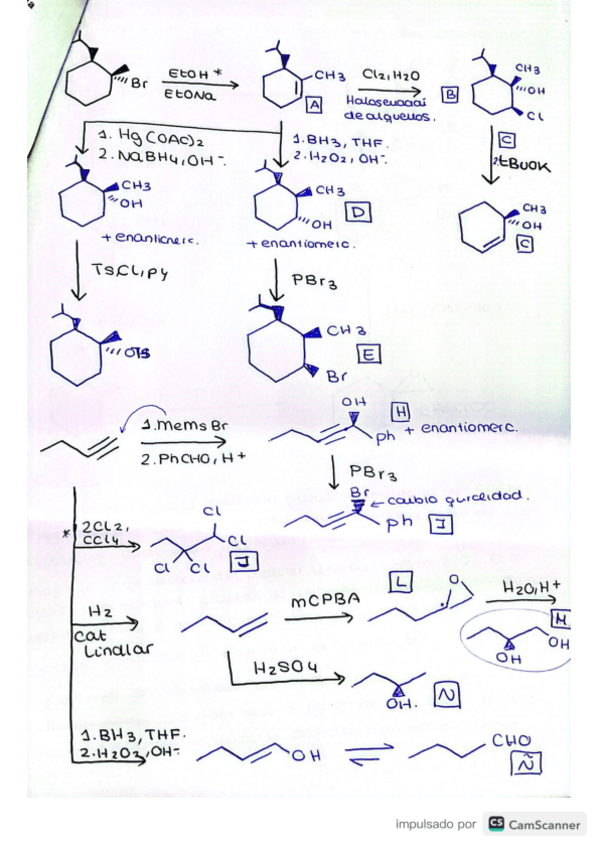 Br
EtOH *
EtONa
CH3
A
Cl2, H2O
B
CH3
OH
Cl
1. Hg(OAc)2
2. NaBH4, OH-.
1. BH3, THF.
2. H2O2, OH-.
C
2. tBuOK
CH3
OH
CH3
OH
D
CH3
OH
C
+ enantiomero.
TsCl, py
PBr3
OTS
CH3
E
Br
OH
H
Ph
+ enantiomero.
1. MeMgBr
2. PhCHO, H+
PBr3
Br
← cambio quiralidad.
Ph
I
* 2Cl2,
CCl4
Cl
Cl
Cl
Cl
J
H2
Cat
Lindlar
mCPBA
L
O
H2O, H+
M
OH
OH
H2SO4
OH.
N
1. BH3, THF.
2. H2O2, OH-
OH
CHO
Ñ
impulsado por CS CamScanner